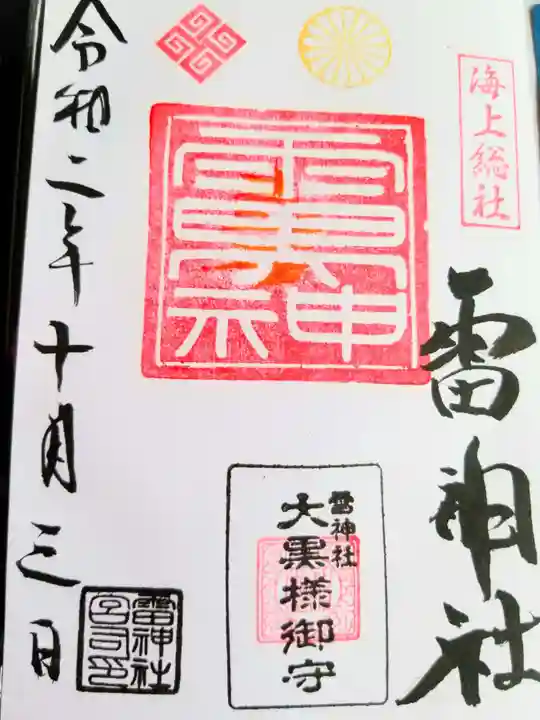 海上総社
雷神社
雷神社
大黒様御守
令和二年十月三日
雷神社
宮司印